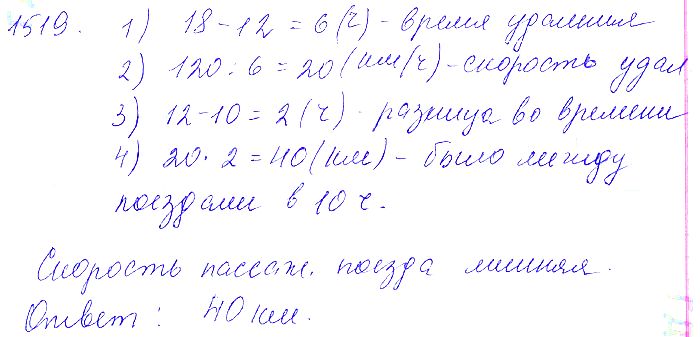 1519. 1) 18-12 = 6 (ч) - время удаления
2) 120 : 6 = 20 (км/ч) - скорость удал
3) 12-10 = 2 (ч) - разница во времени
4) 20 · 2 = 40 (км) - было между
поездами в 10 ч.
Скорость пассаж. поезда лишняя.
Ответ: 40 км.